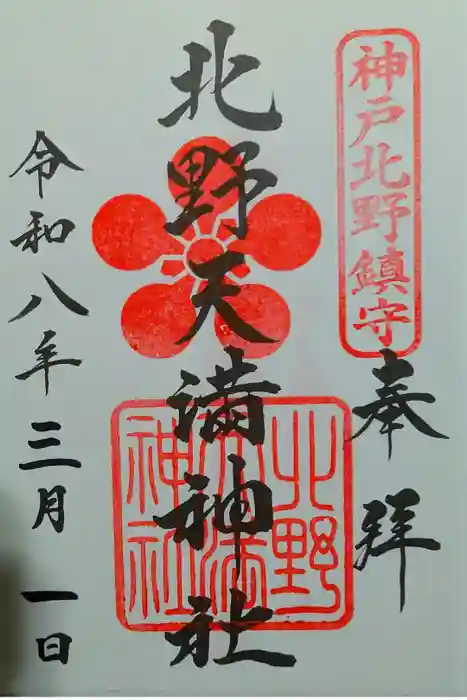 神戸北野鎮守
奉拝
北野天満神社
北野天満神社
令和八年三月一日